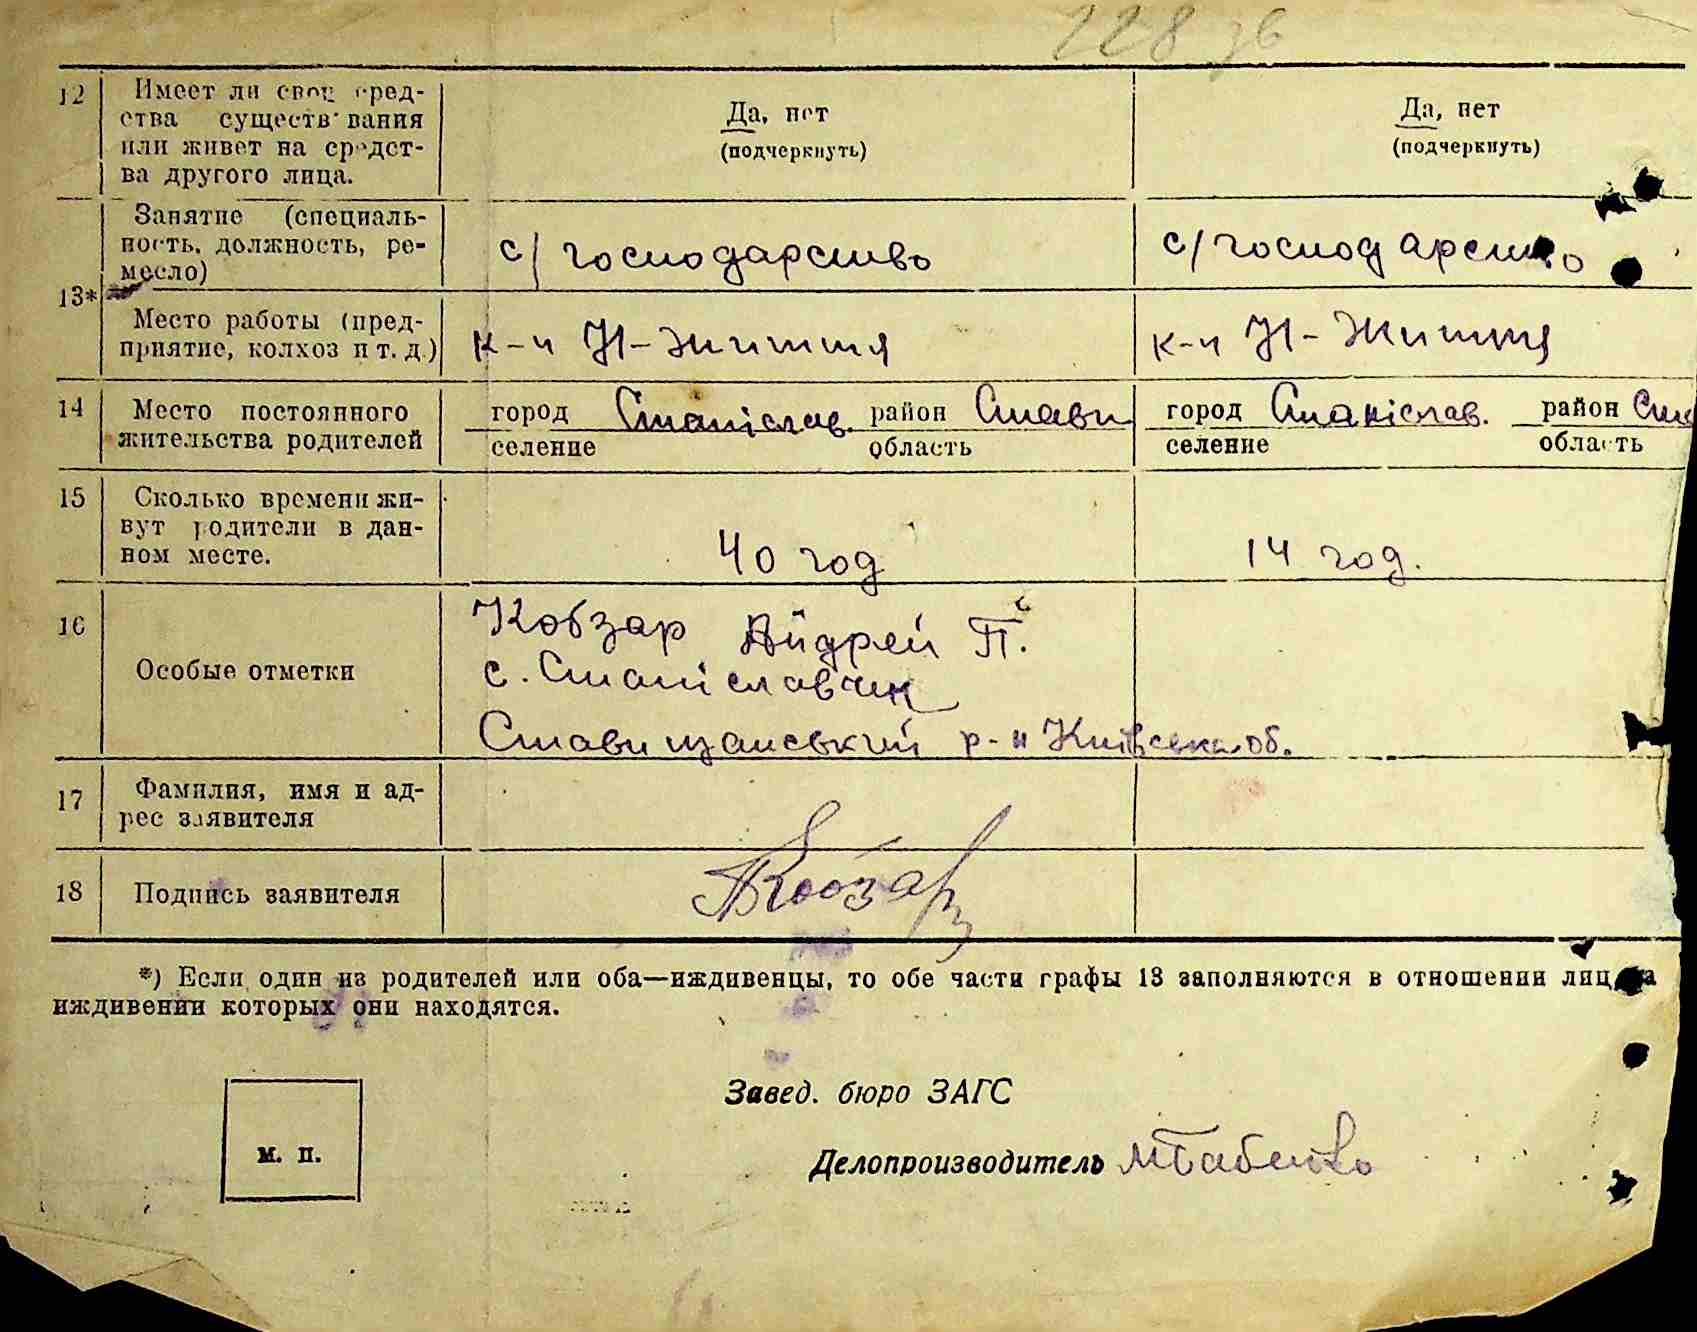 228 зв
12 Имеет ли свои сред-
ства существования
или живет на средст-
ва другого лица.
Да, нет
(подчеркнуть)
Да, нет
(подчеркнуть)
13*
Занятие (специаль-
ность, должность, ре-
месло)
с/господарство
с/господарство
Место работы (пред-
приятие, колхоз и т. д.)
к-п Н-Життя
к-п Н-Життя
14 Место постоянного
жительства родителей
город Станіслав. район Стави
селение область
город Станіслав. район Ста
селение область
15 Сколько времени жи-
вут родители в дан-
ном месте.
40 год
14 год.
16 Особые отметки
Кобзар Андрей П.
с. Станіславчик
Ставищанський р-н Київська об.
17 Фамилия, имя и ад-
рес заявителя
18 Подпись заявителя
Кобзар
*) Если один из родителей или оба—иждивенцы, то обе части графы 13 заполняются в отношении лиц, на
иждивении которых они находятся.
м. п.
Завед. бюро ЗАГС
Делопроизводитель